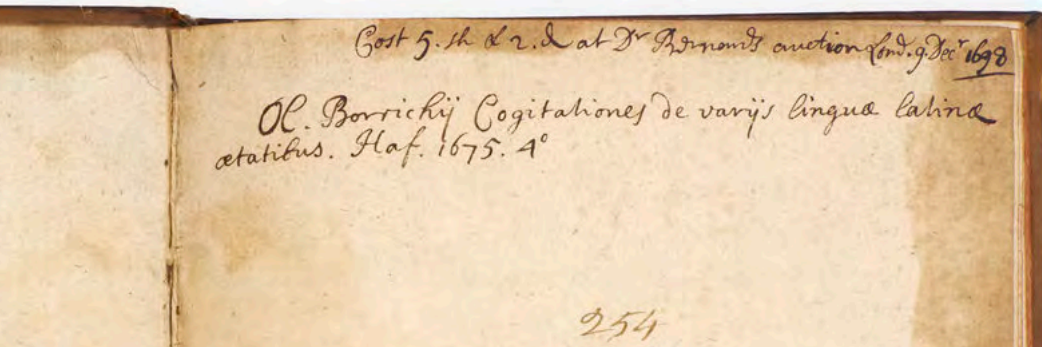 Cost 5. sh & 2. d at Dr Bernard's auction Lond. 9. Decr 1698
Ol. Borrichij Cogitationes de varijs linguæ latinæ
ætatibus. Haf. 1675. 4°
254